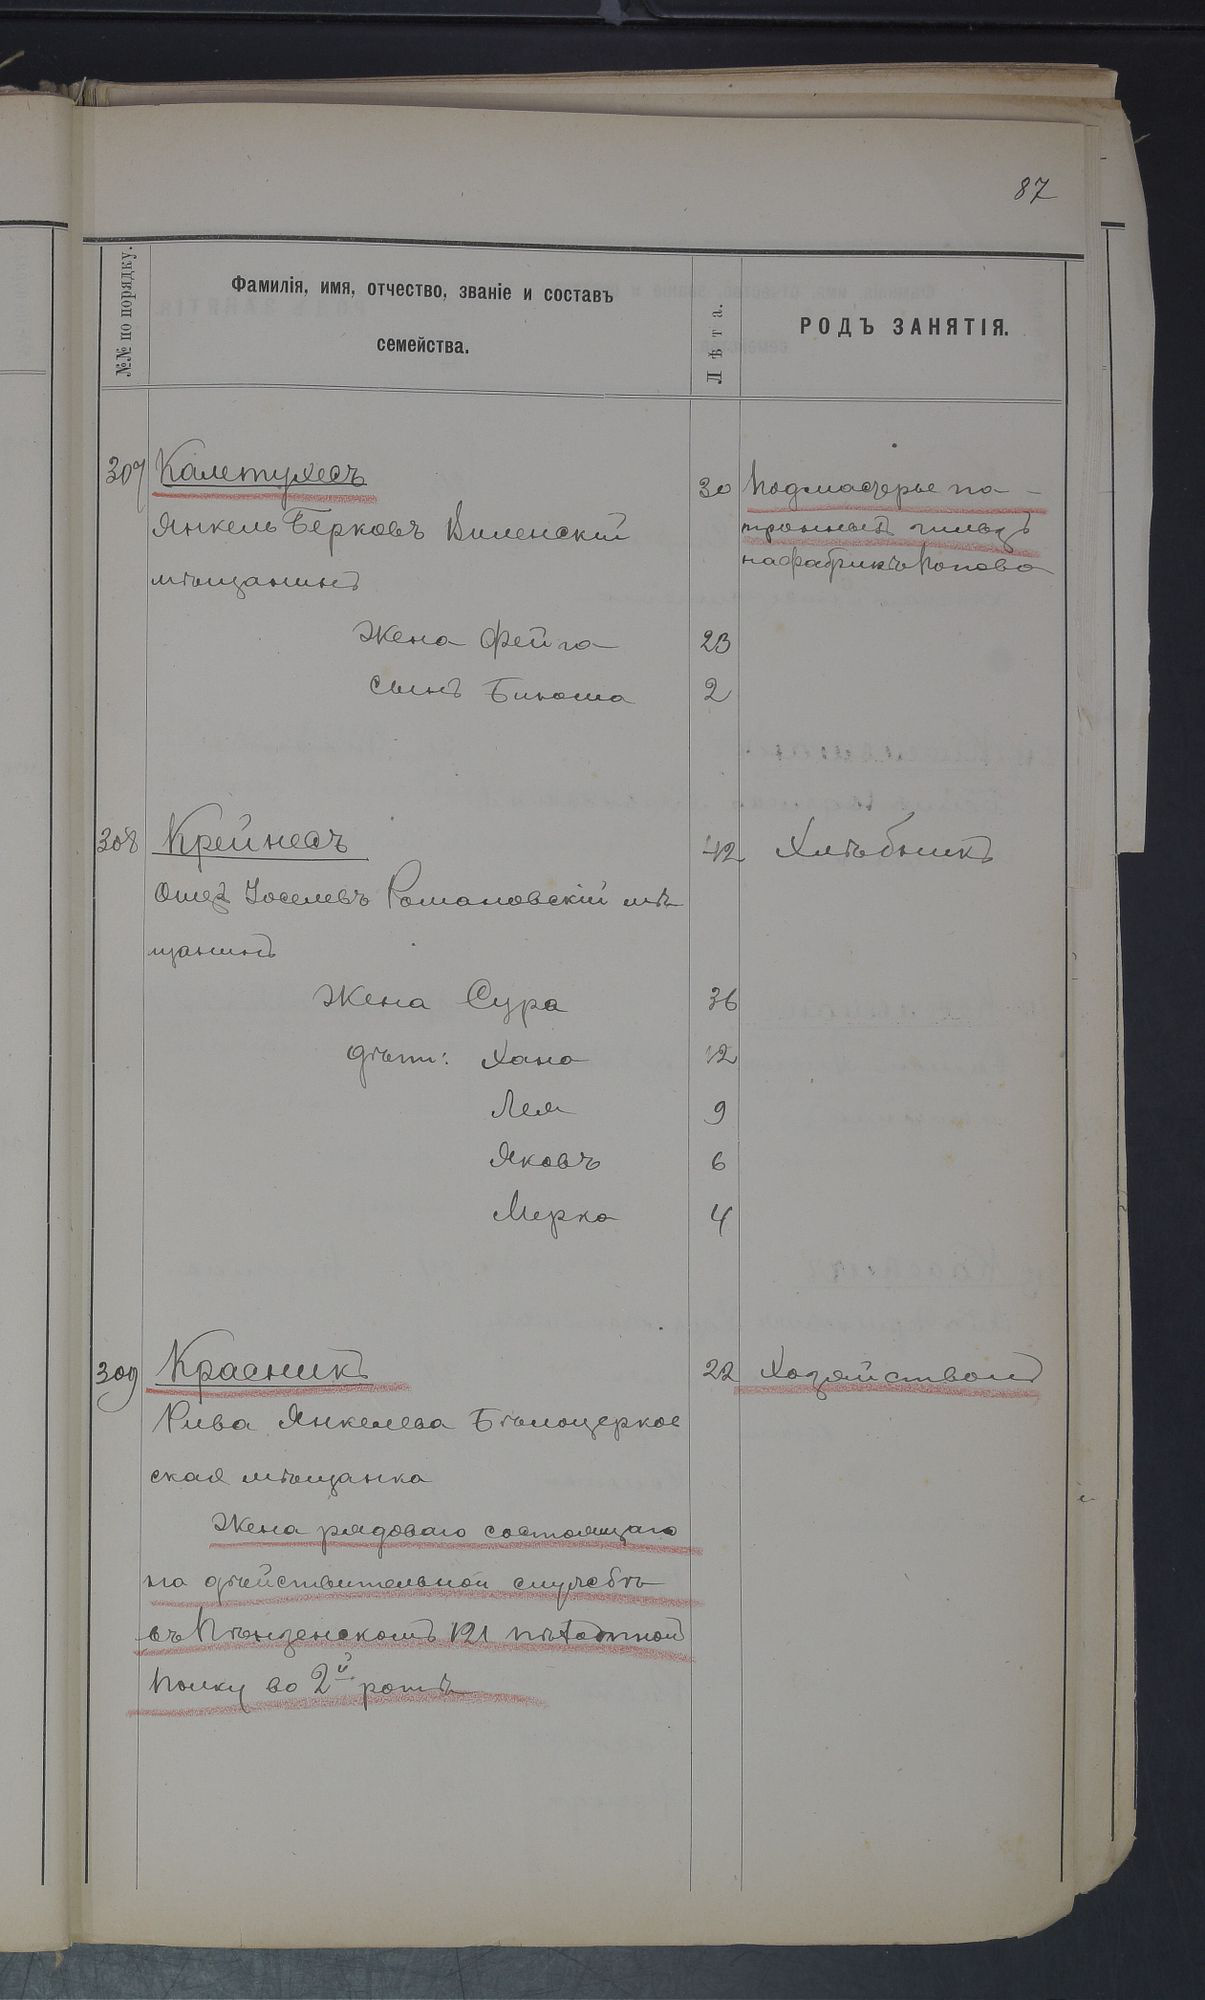 87
№№ по порядку.
Фамилія, имя, отчество, званіе и составъ
семейства.
Лѣта.
РОДЪ ЗАНЯТІЯ.
307 Калетухесъ 30 Подмастерье па-
Янкель Берковъ Виленскій тронныхъ гильзъ
мѣщанинъ на фабрикѣ Попова
Жена Фейга 23
сынъ 2
308 Крейнесъ 42 Хлѣбникъ
Ошер Іоселевъ Романовскій мѣ
щанинъ
Жена Сура 36
дѣти: Хана 12
Лея 9
Яковъ 6
Мерка 4
309 Красникъ 22 Хозяйствомъ
Рива Янкелева Бѣлоцерков
ская мѣщанка
Жена рядоваго состоящаго
на дѣйствительной службѣ
въ Пѣнзенскомъ 121 пѣхотном
Полку во 2й ротѣ